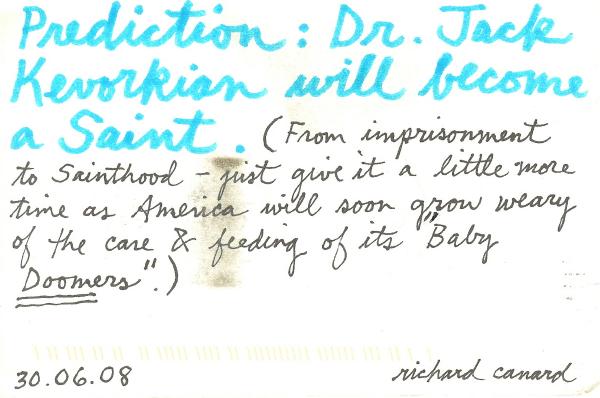 Prediction: Dr. Jack
Kevorkian will become
a Saint. (From imprisonment
to Sainthood – just give it a little more
time as America will soon grow weary
of the care & feeding of its "Baby
Doomers".)
30.06.08 richard canard